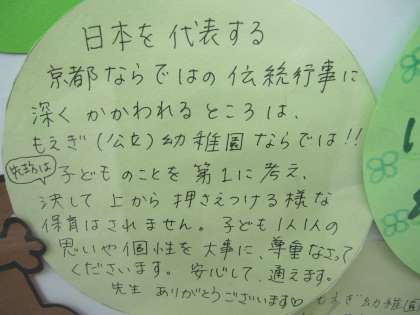 日本を代表する
京都ならではの伝統行事に
深くかかわれるところは、
もえぎ(公立)幼稚園ならでは!!
先生は
子どものことを第1に考え、
決して上から押さえつける様な
保育はされません。子ども1人1人の
思いや個性を大事に、尊重なさって
くださいます。安心して、通えます。
先生ありがとうございます♡
もえぎ幼稚園